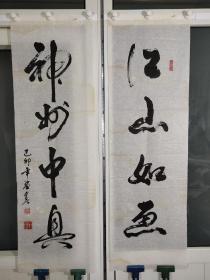 江山如画
神州中兴
己卯年